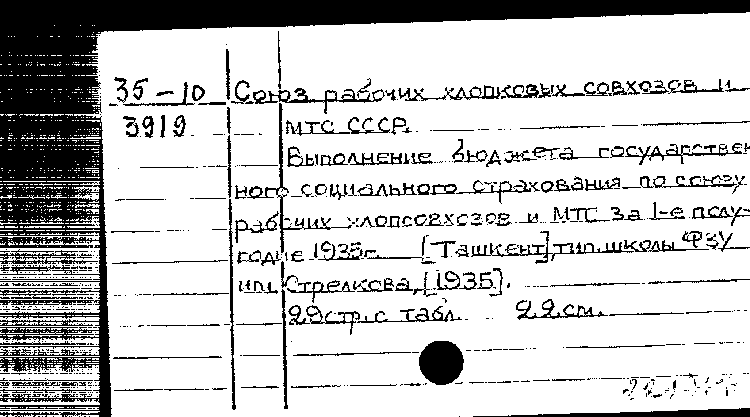 35-10 Союз рабочих хлопковых совхозов и
3919 МТС СССР.
Выполнение бюджета государствен
ного социального страхования по союзу
рабочих хлопсовхозов и МТС за 1-е полу-
годие 1935г. [Ташкент], тип. школы ФЗУ
им. Стрелкова, [1935].
22 стр. с табл. 22 см.